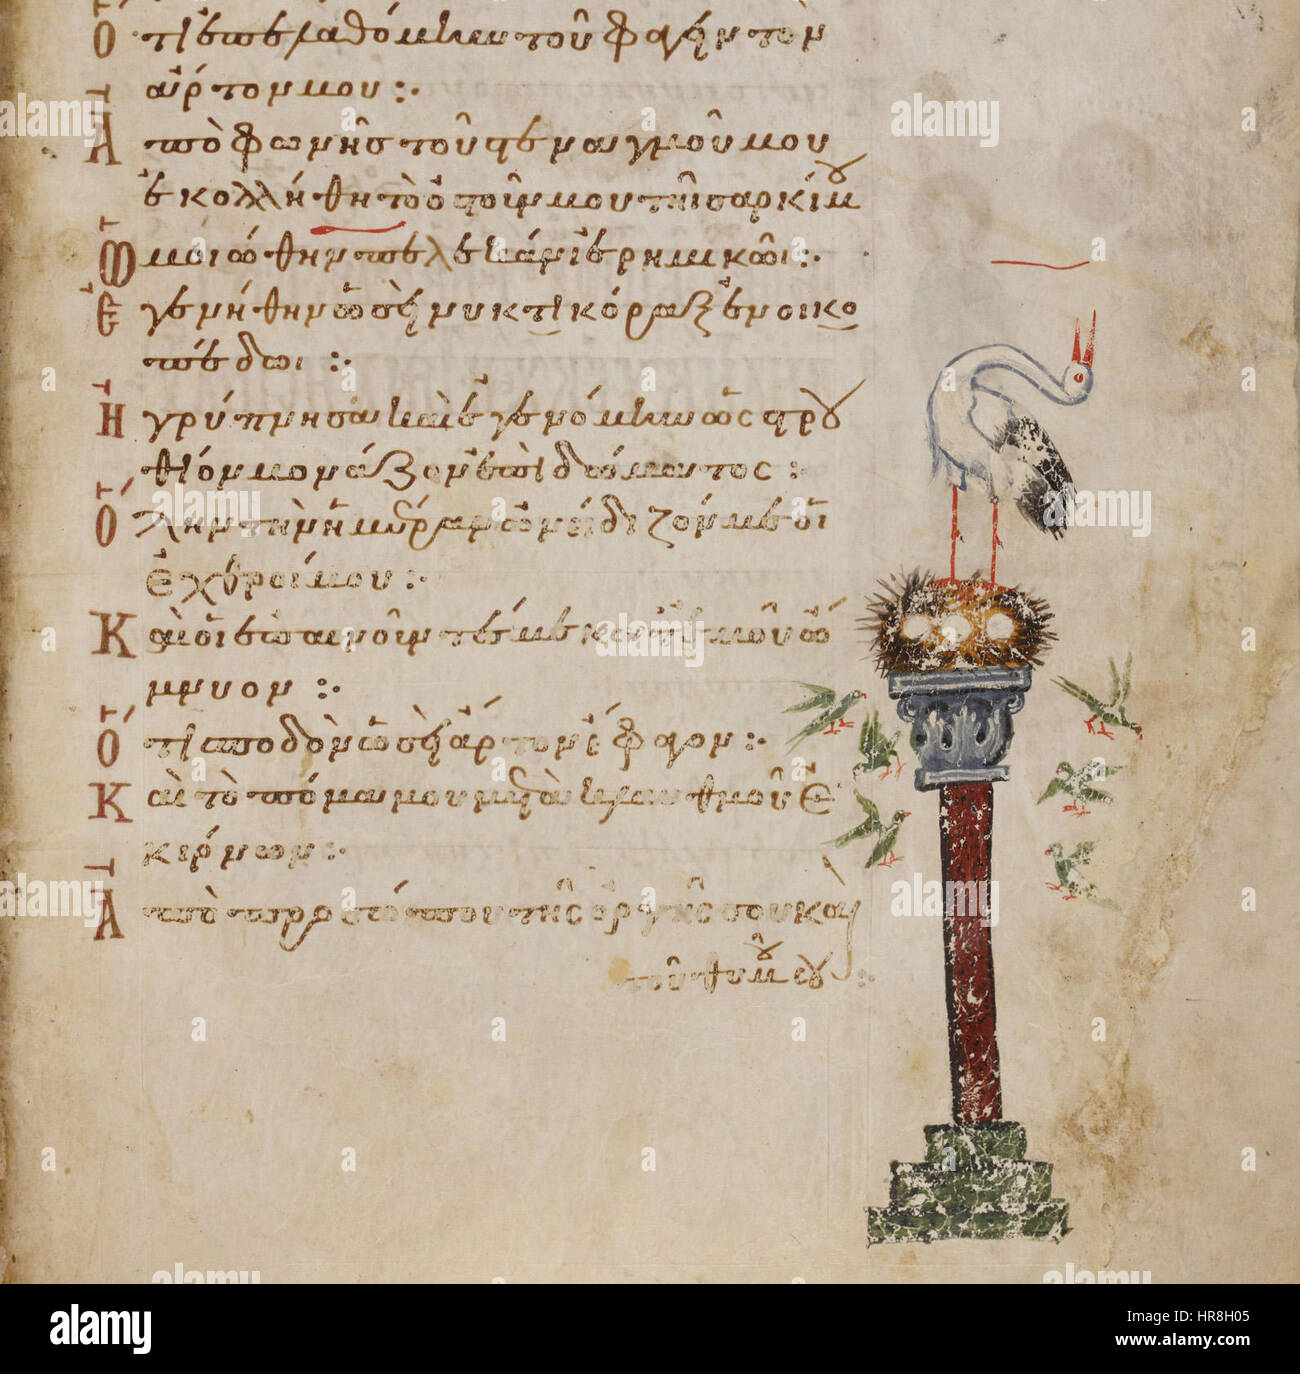 ὅτι ἐπελαθόμην τοῦ φαγεῖν τὸν
ἄρτον μου :·
Ἀπὸ φωνῆς τοῦ στεναγμοῦ μου
ἐκολλήθη τὸ ὀστοῦν μου τῆι σαρκί μου
Ὡμοιώθην πελεκᾶνι ἐρημικῶι :·
Ἐγενήθην ὡσεὶ νυκτικόραξ ἐν οἰκο
πέδωι :·
Ἠγρύπνησα καὶ ἐγενόμην ὡς στρου
θίον μονάζον ἐπὶ δώματος :
Ὅλην τὴν ἡμέραν ὠνείδιζόν με οἱ
ἐχθροί μου :
Καὶ οἱ ἐπαινοῦντές με κατ' ἐμοῦ ὤ
μνυον :·
Ὅτι σποδὸν ὡσεὶ ἄρτον ἔφαγον :·
Καὶ τὸ πόμα μου μετὰ κλαυθμοῦ ἐ
κίρνων :·
Ἀπὸ προσώπου τῆς ὀργῆς σου καὶ
τοῦ θυμοῦ σου :
alamy
HR8H05
www.alamy.com